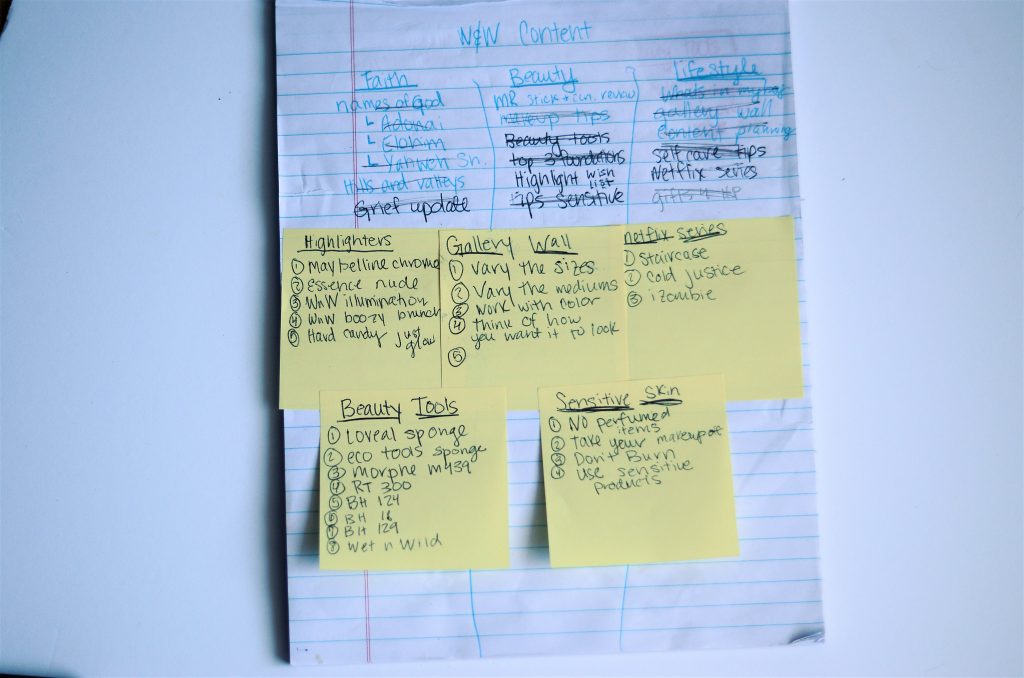 N&W Content
Faith
names of God
Adonai
Elohim
Yahweh Sh.
Hills and valleys
Grief update
Beauty
MR stick + cun. review
makeup tips
Beauty tools
top 3 foundations
Highlight wish list
Tips sensitive
Lifestyle
whats in my bag
gallery wall
content planning
self care tips
Netflix series
gifts 4 HP
Highlighters
① Maybelline chrome
② essence nude
③ WnW illumination
④ WnW boozy brunch
⑤ Hard candy just
glow
Gallery Wall
① vary the sizes
② Vary the mediums
③ work with color
④ think of how
you want it to look
⑤
netflix series
① staircase
② cold justice
③ izombie
Beauty Tools
① Loreal sponge
② eco tools sponge
③ morphe m439
④ RT 300
⑤ BH 124
⑥ BH 16
⑦ BH 129
⑧ wet n wild
Sensitive Skin
① NO perfumed
items
② take your makeup off
③ Don't Burn
④ use sensitive
products